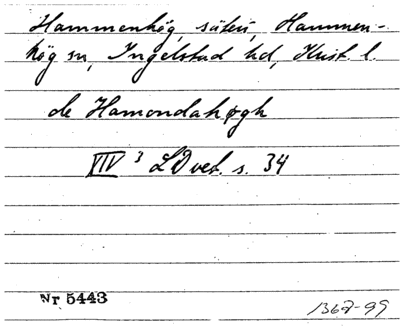 Hammenhög, säteri, Hammen-
hög sn, Ingelstad hd, Krist. l.
de Hamondahøgh
VIII 3 LDvet. s. 34
Nr 5443
1367-99